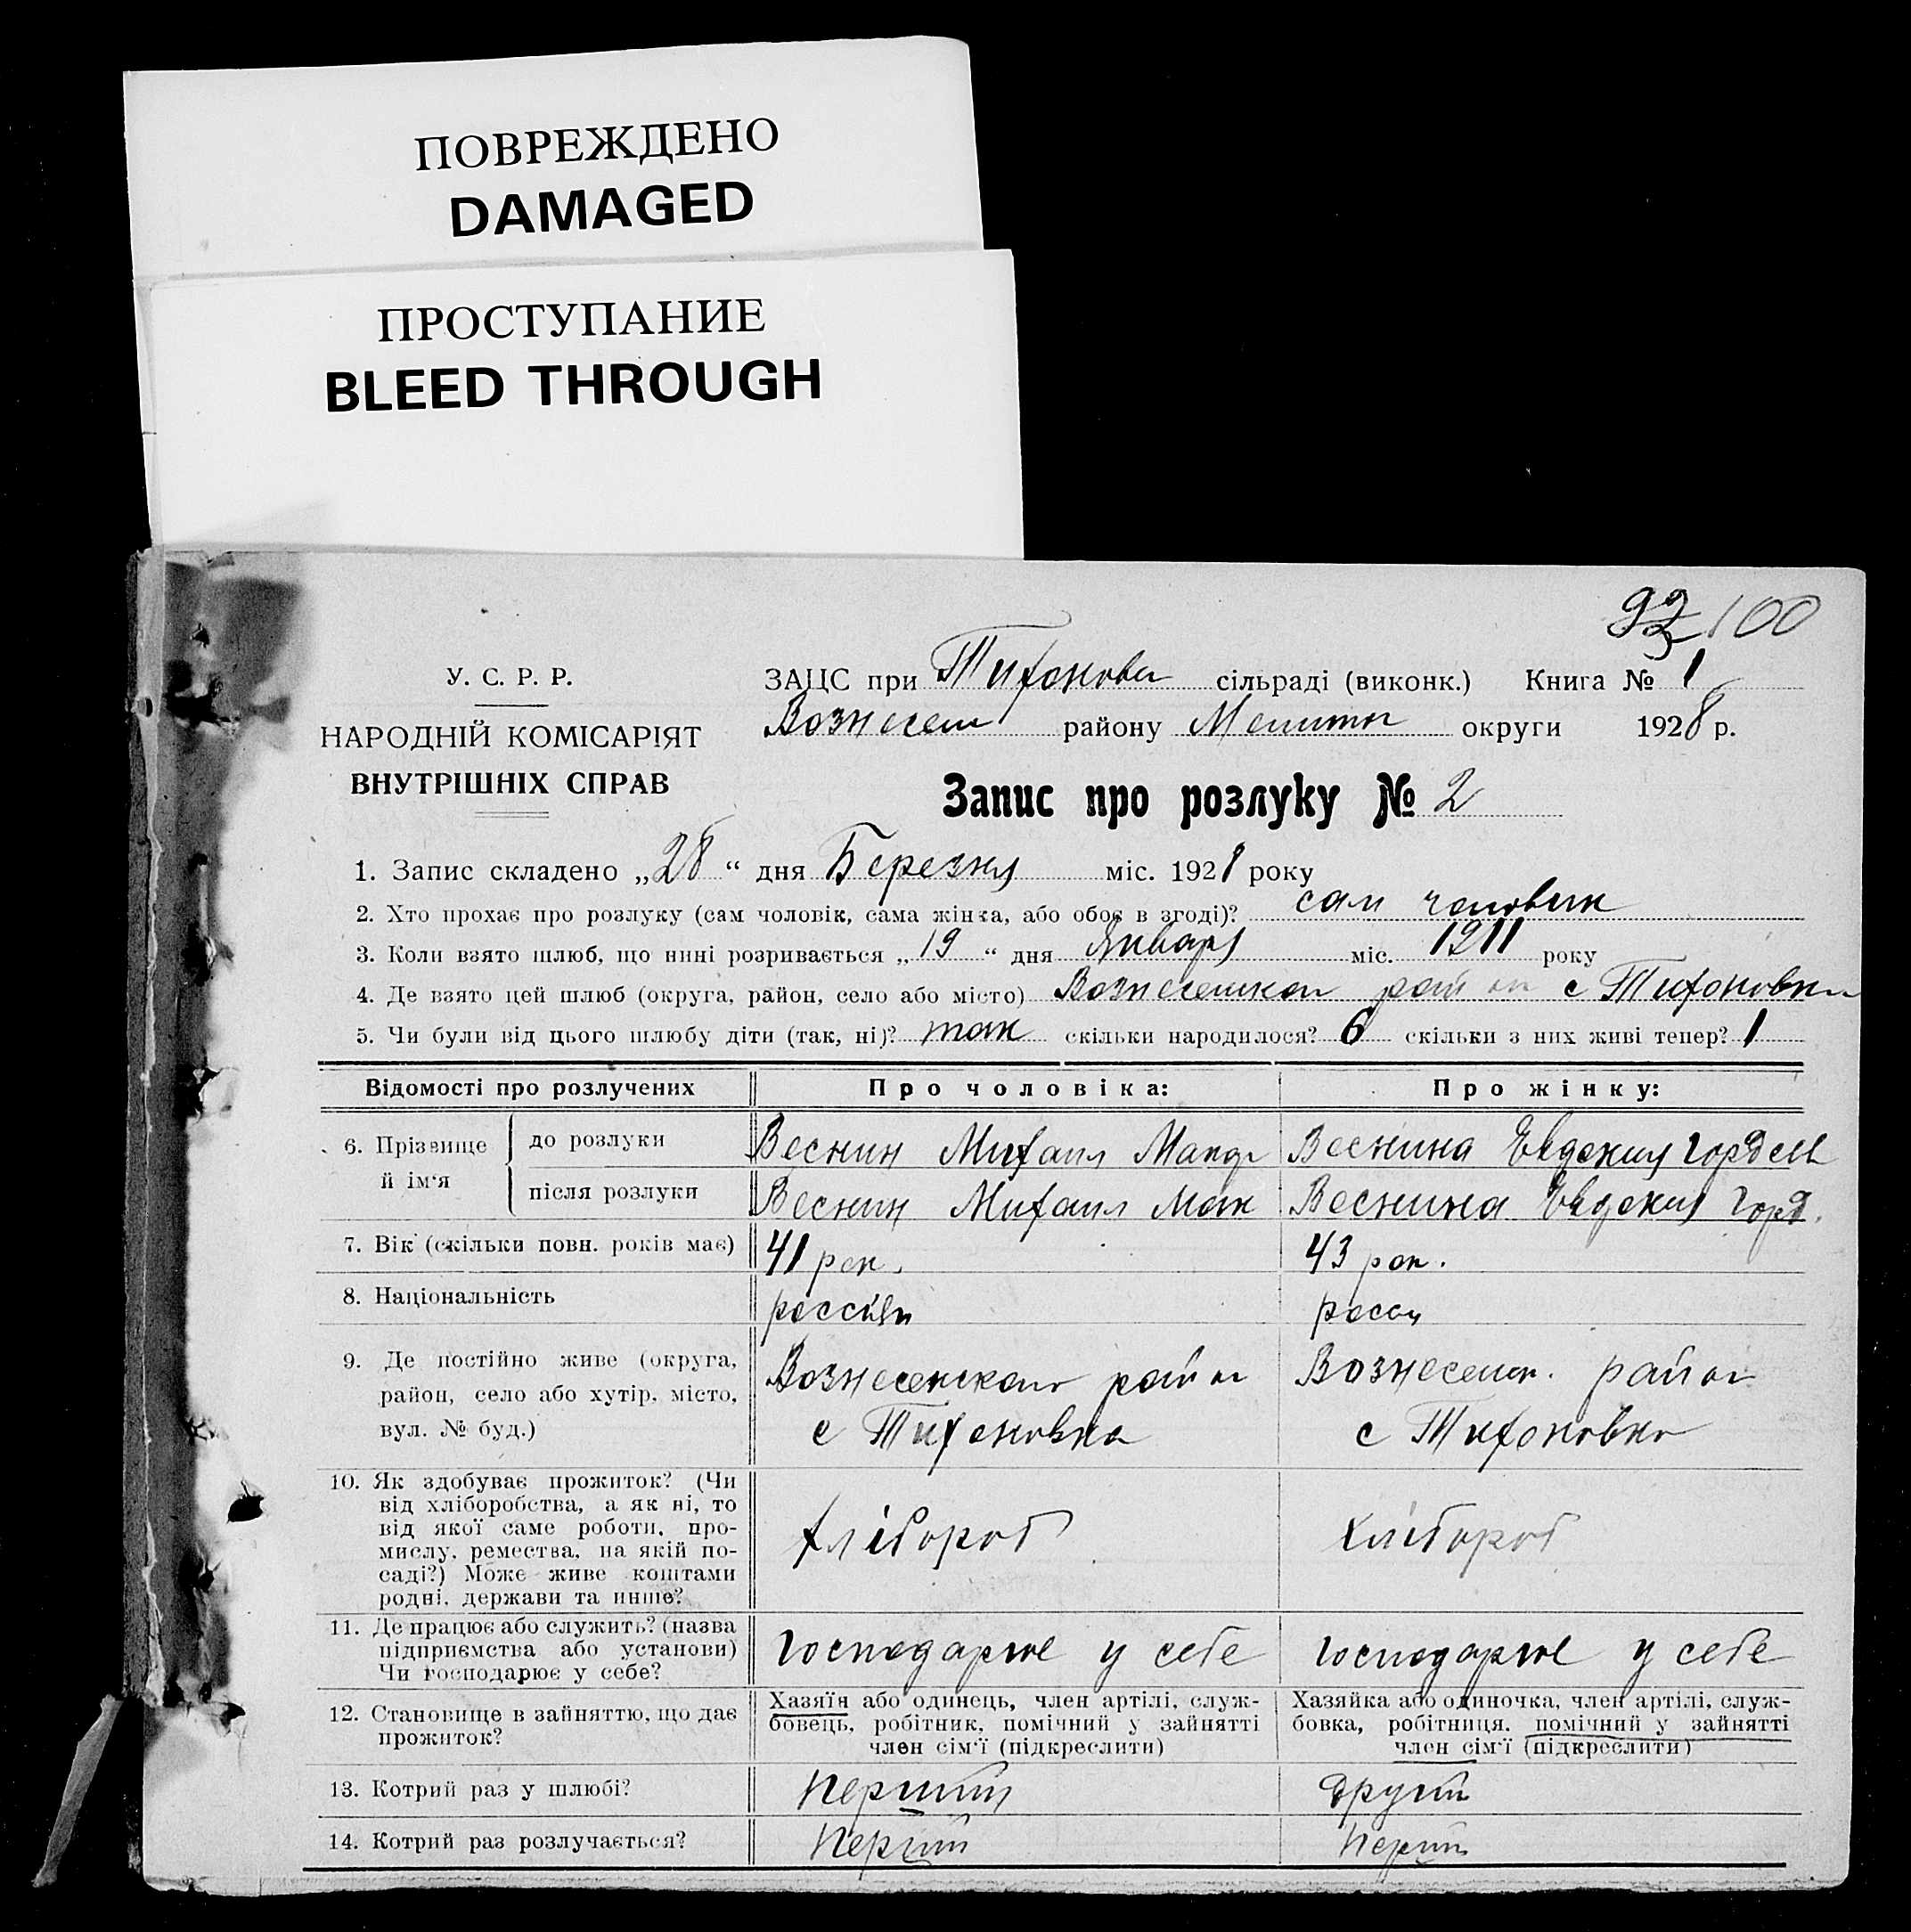 ПОВРЕЖДЕНО
DAMAGED
ПРОСТУПАНИЕ
BLEED THROUGH
92 100
У. С. Р. Р.
НАРОДНІЙ КОМІСАРІЯТ
ВНУТРІШНІХ СПРАВ
ЗАЦС при Тихонов сільраді (виконк.) Книга № 1
Вознесен району Мелитоп округи 1928 р.
Запис про розлуку № 2
1. Запис складено „28“ дня Березня міс. 1928 року
2. Хто прохає про розлуку (сам чоловік, сама жінка, або обоє в згоді)? сам чоловик
3. Коли взято шлюб, що нині розривається „19“ дня Января міс. 1911 року
4. Де взято цей шлюб (округа, район, село або місто) Вознесенкой район с Тихоновки
5. Чи були від цього шлюбу діти (так, ні)? так скільки народилося? 6 скільки з них живі тепер? 1
Відомості про розлучених Про чоловіка: Про жінку:
6. Прізвище й ім'я
до розлуки Веснин Михаил Макар Веснина Евдокия Гордеев
після розлуки Веснин Михаил Мак Веснина Евдокия Горд.
7. Вік (скільки повн. років має) 41 рок. 43 рок.
8. Національність россіян
9. Де постійно живе (округа, район, село або хутір, місто, вул. № буд.)
Вознесенского район Вознесенк. район
с Тихоновка с Тихоновка
10. Як здобуває прожиток? (Чи
від хліборобства, а як ні, то
від якої саме роботи, про-
мислу, ремества, на якій по-
саді?) Може живе коштами
родні, держави та инше?
хлібороб хлібороб
11. Де працює або служить? (назва
підприємства або установи)
Чи господарює у себе?
Господарює у себе Господарює у себе
12. Становище в зайняттю, що дає
прожиток?
Хазяїн або одинець, член артілі, служ-
бовець, робітник, помічний у зайнятті
член сім'ї (підкреслити)
Хазяйка або одиночка, член артілі, служ-
бовка, робітниця, помічний у зайнятті
член сім'ї (підкреслити)
13. Котрий раз у шлюбі? Перший другий
14. Котрий раз розлучається? Перший Перший